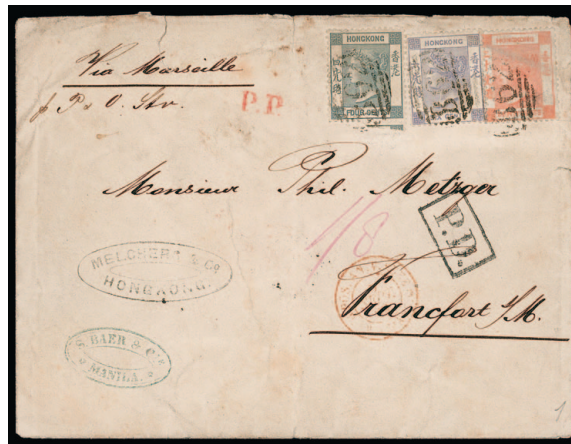 Via Marseille
p P. & O. Str.
P.P.
HONGKONG
FOUR CENTS
HONGKONG
HONGKONG
B62
Monsieur Phil. Metzger
1/8
P.D.
MELCHERS & Co
HONGKONG
Francfort s/M.
S. BAER & Co
MANILA.
1